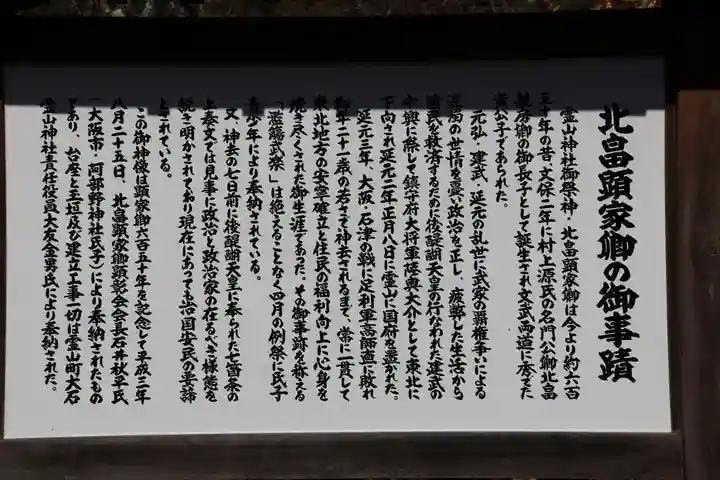 北畠顕家卿の御事蹟
霊山神社御祭神・北畠顕家卿は今より約六百
五十年の昔、文保二年に村上源氏の名門公卿北畠
親房卿の御長子として誕生され文武両道に秀でた
貴公子であられた。
元弘・建武・延元の乱世に武家の覇権争いによる
混濁の世情を憂い政治を正し、疲弊した生活から
国民を救済するために後醍醐天皇の行なわれた建武の
中興に際して鎮守府大将軍陸奥大介として東北に
下向され延元二年正月八日に霊山に国府を置かれた。
延元三年、大阪・石津の戦に足利軍高師直に敗れ
御年二十一歳の若さで神去されるまで、常に一貫して
東北地方の安寧確立と住民の福利向上に心身を
焼き尽くされた御生涯であった。その御事跡を称える
「濫觴武楽」は絶えることなく四月の例祭に氏子
青少年により奉納されている。
又、神去の七日前に後醍醐天皇に奉られた七箇条の
上奏文では見事に政治と政治家の在るべき様態を
説き明かされており現在にあっても治国安民の要諦
とされている。
この御神像は顕家卿六百五十年を記念して平成三年
八月二十五日、北畠顕家卿顕彰会会長石井秋平氏
(大阪市・阿部野神社氏子)により奉納されたもの
であり、台座と玉垣及び建立工事一切は霊山町大石
霊山神社責任役員大友金男氏により奉納された。